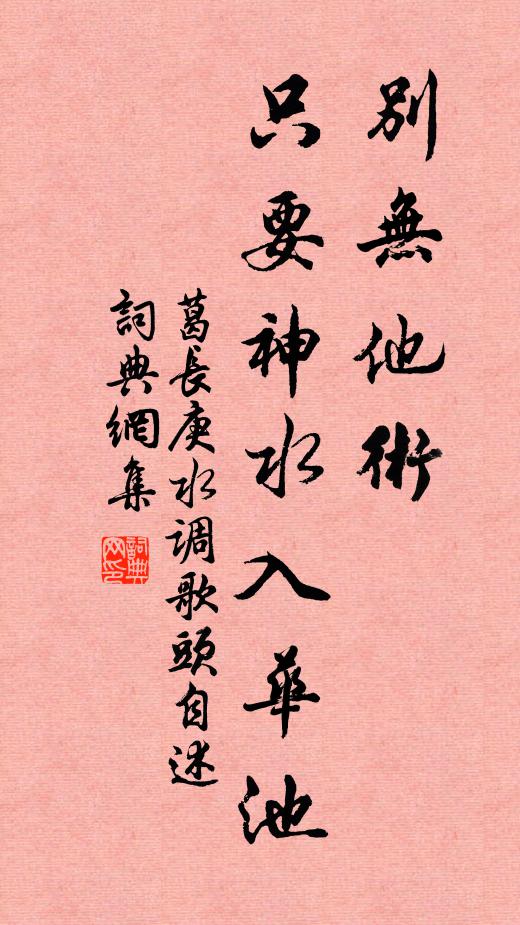 別無他術
只要神水入華池
葛長庚水调歌頭自述
詞典網集
詞典网印